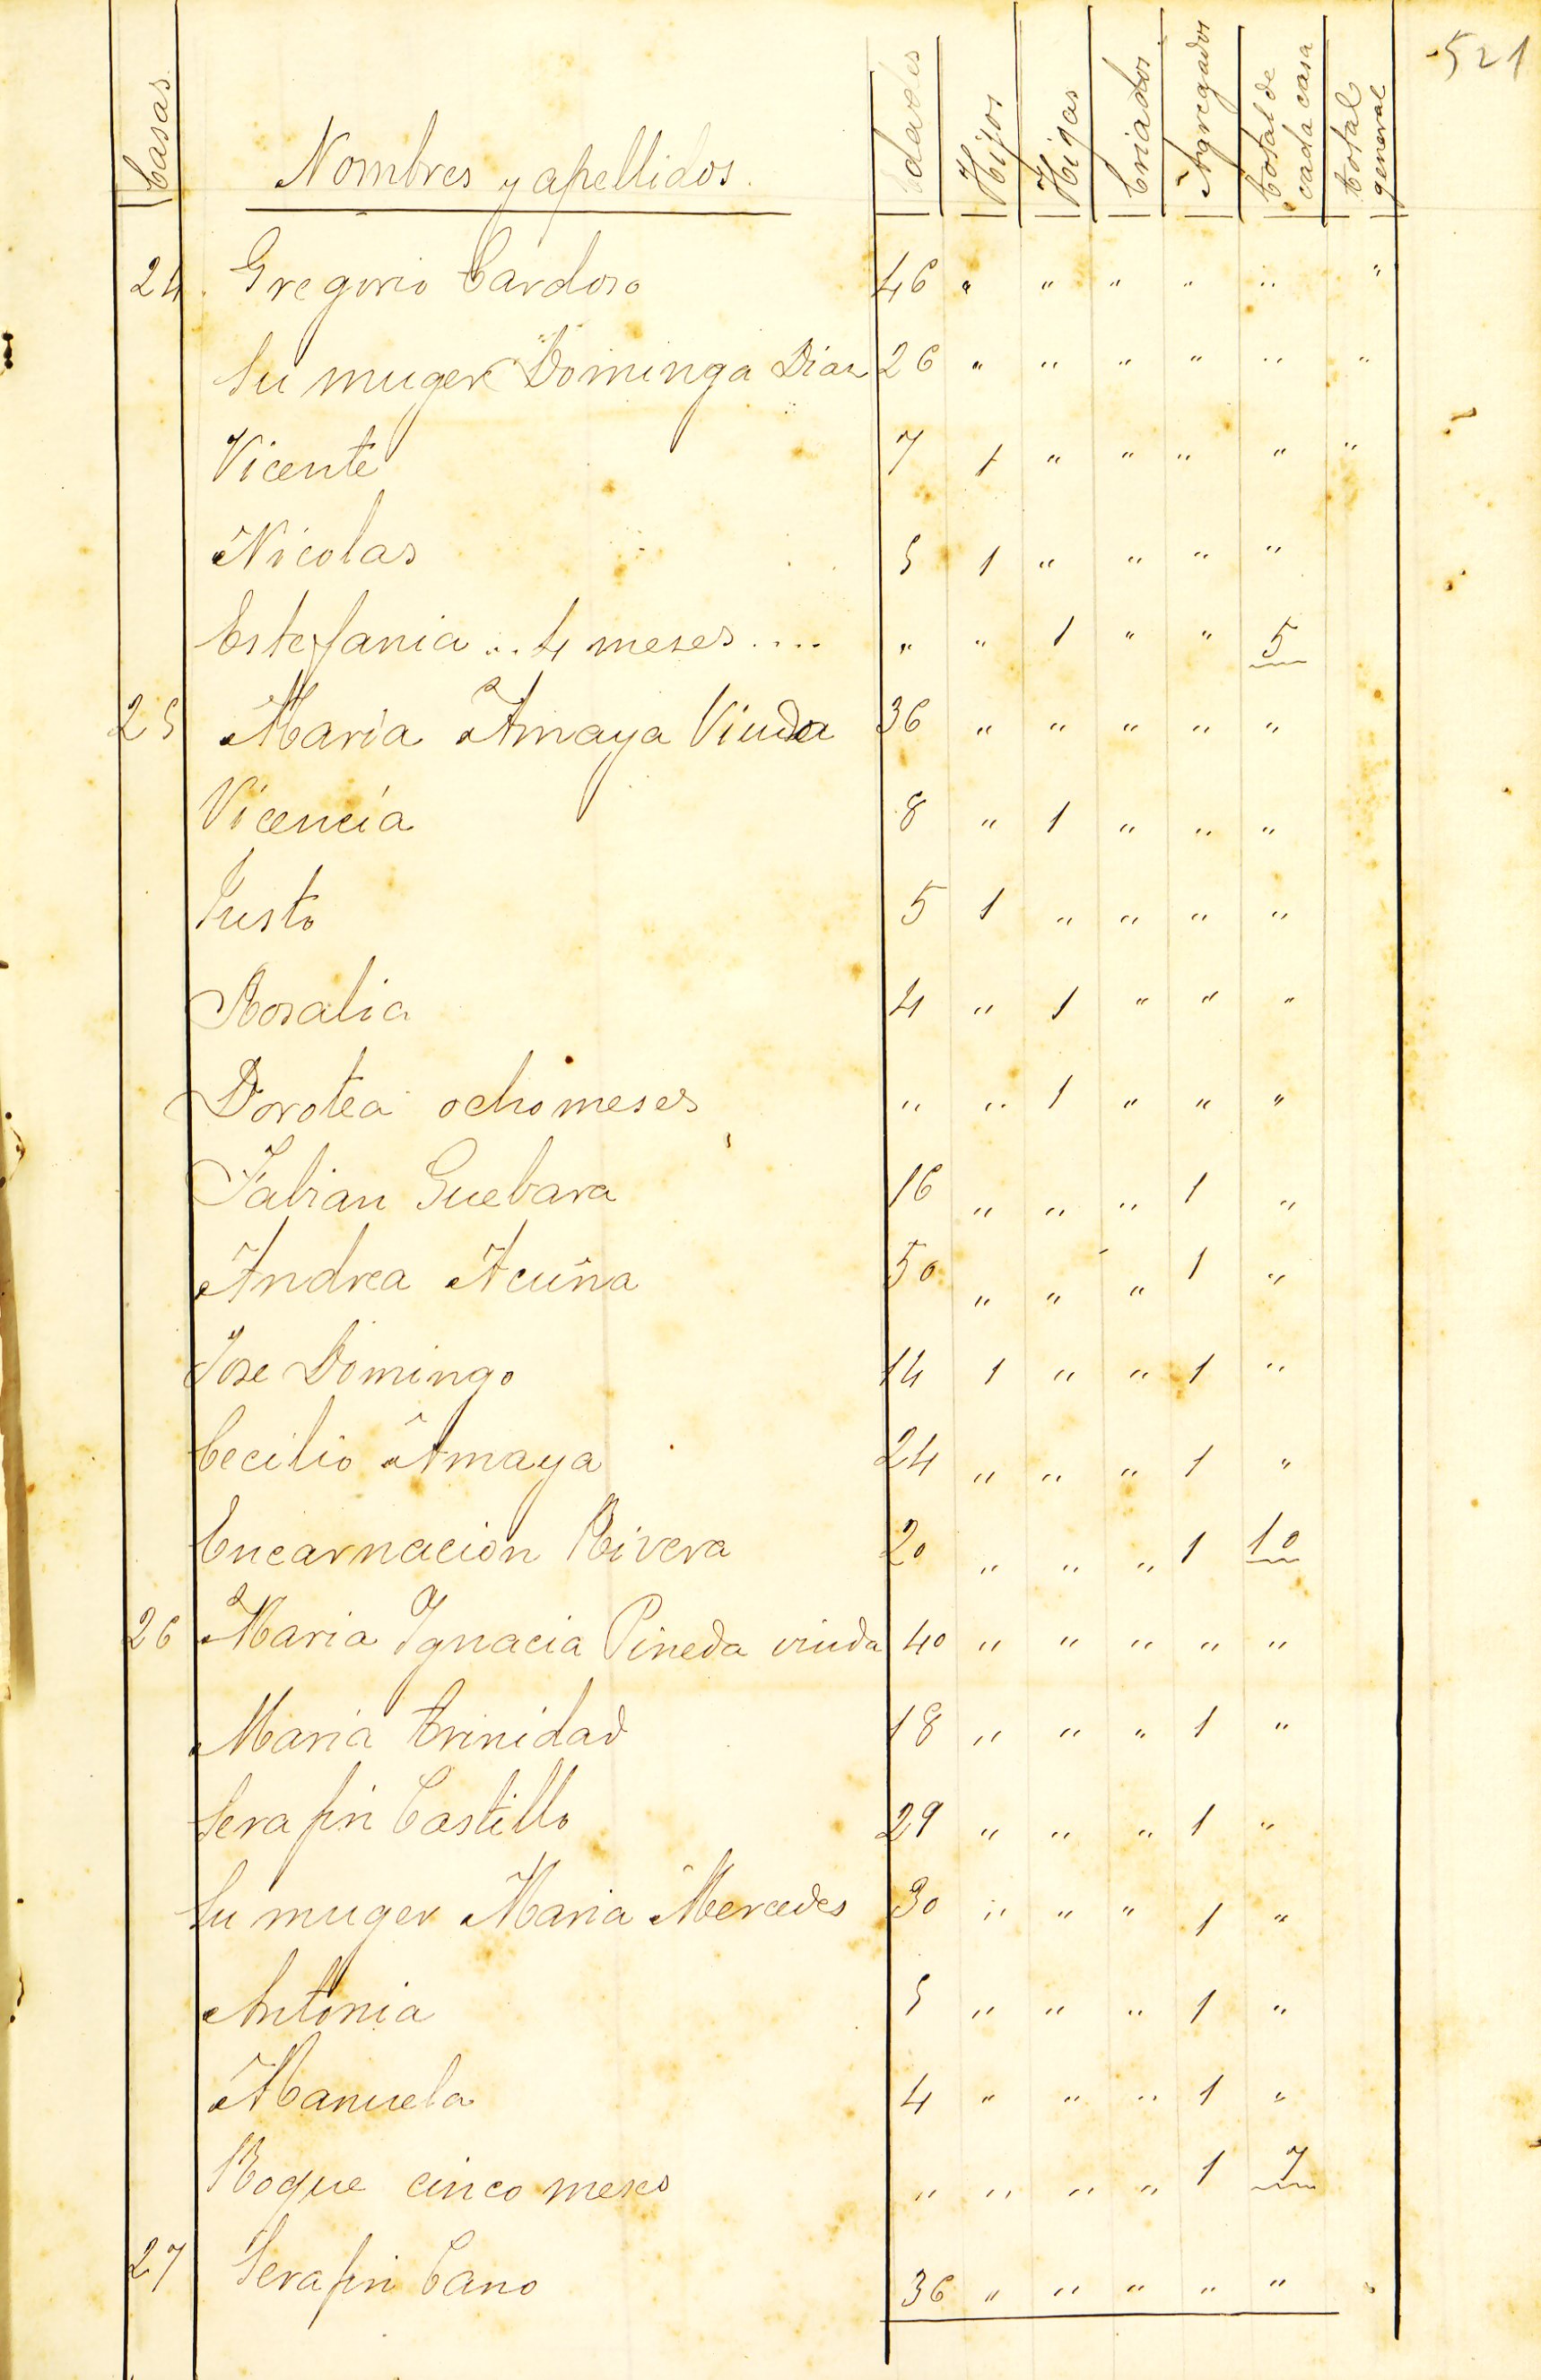 521
Casas Nombres y apellidos. Edades Hijos Hijas Criados Agregados total de cada casa total general
24 Gregorio Cardoso 46 " " " " " "
Su muger Dominga Diaz 26 " " " " " "
Vicente 7 1 " " " " "
Nicolas 5 1 " " " "
Estefania .. 4 meses .... " " 1 " " 5
25 Maria Amaya Viuda 36 " " " " "
Vicencia 8 " 1 " " "
Justo 5 1 " " " "
Rosalia 4 " 1 " " "
Dorotea ocho meses " " 1 " " "
Fabian Guebara 16 " " " 1 "
Andrea Acuña 50 " " " 1 "
Jose Domingo 14 1 " " 1 "
Cecilio Amaya 24 " " " 1 "
Encarnacion Rivera 20 " " " 1 10
26 Maria Ygnacia Pineda viuda 40 " " " " "
Maria trinidad 18 " " " 1 "
Serafin Castillo 29 " " " 1 "
Su muger Maria Mercedes 30 " " " 1 "
Antonia 5 " " " 1 "
Manuela 4 " " " 1 "
Roque cinco meses " " " " 1 7
27 Serafin Cano 36 " " " " "